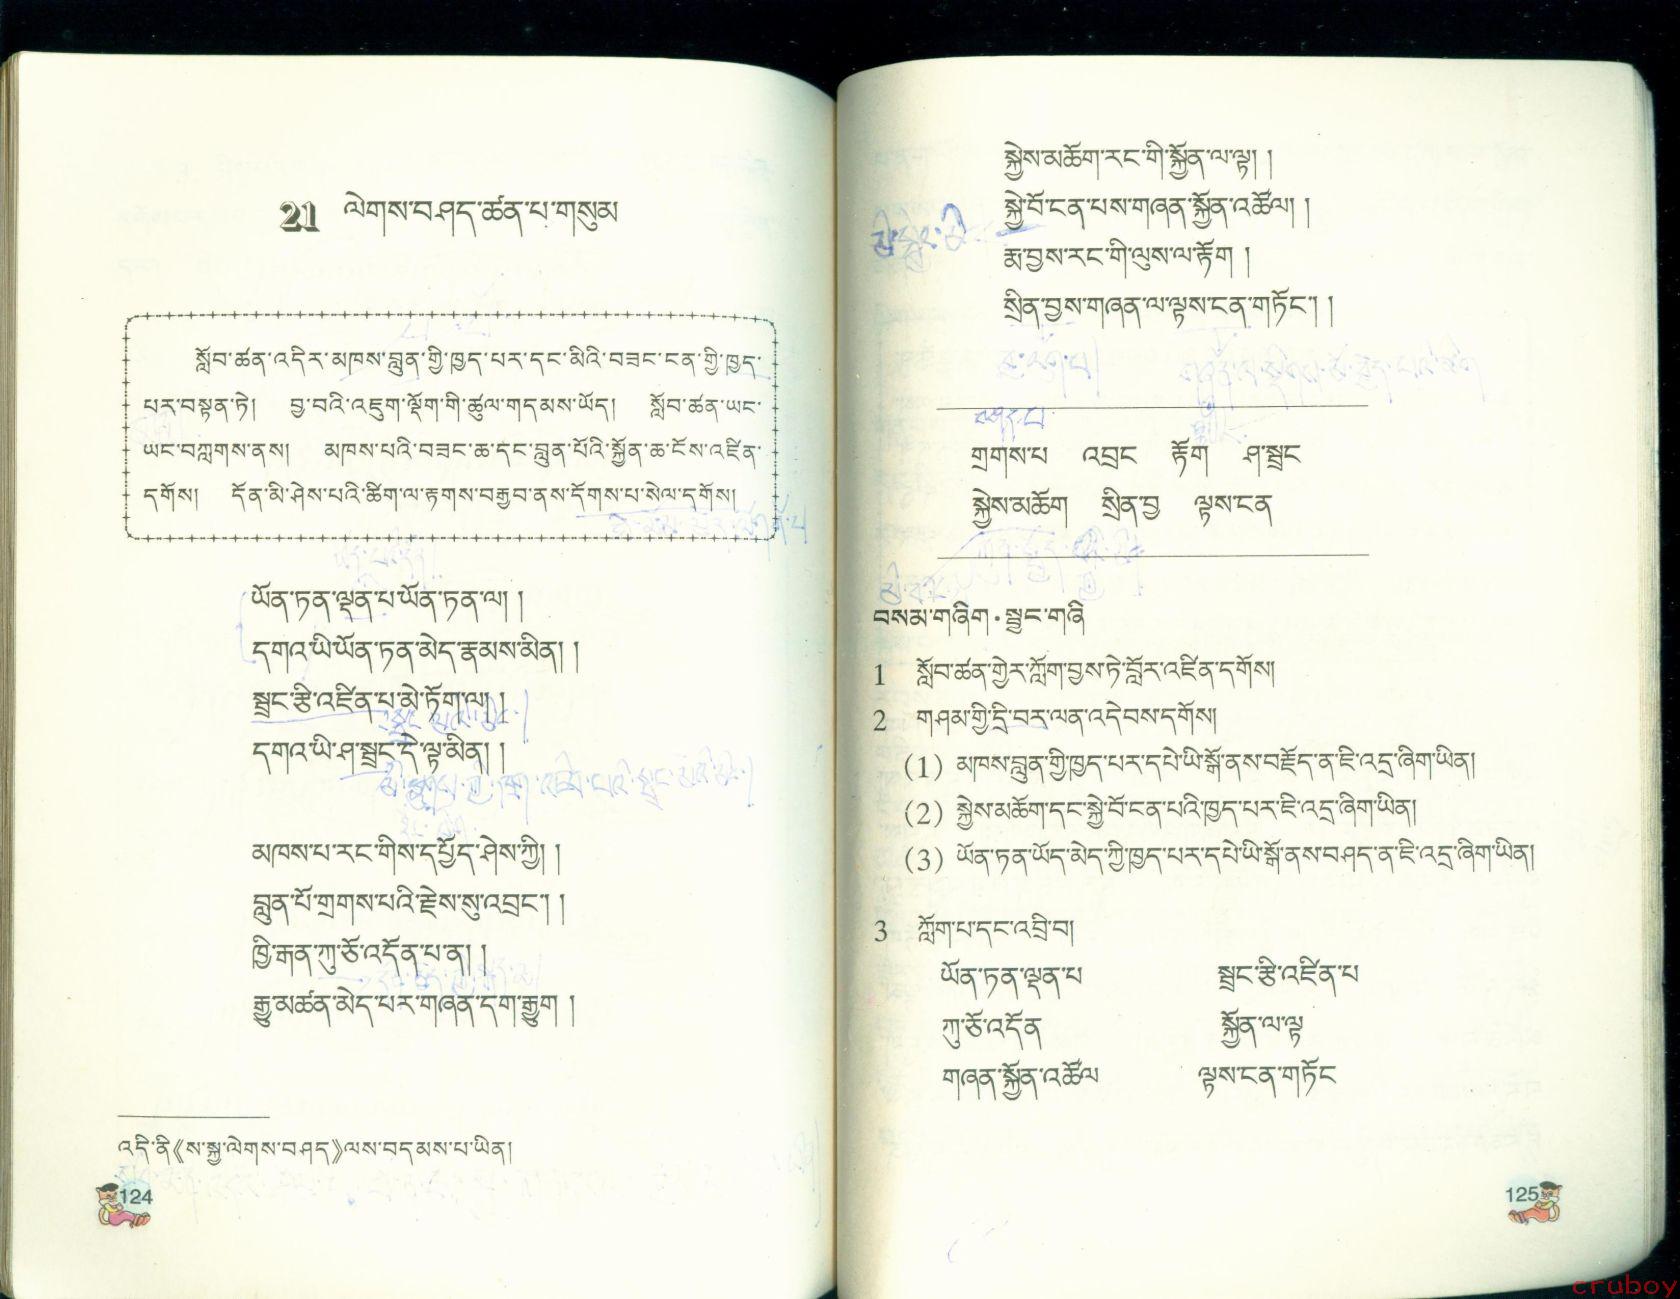 21 ལེགས་བཤད་ཚན་པ་གསུམ
སློབ་ཚན་འདིར་མཁས་བླུན་གྱི་ཁྱད་པར་དང་མིའི་བཟང་ངན་གྱི་ཁྱད་
པར་བསྟན་ཏེ། བྱ་བའི་འཇུག་ལྡོག་གི་ཚུལ་གདམས་ཡོད། སློབ་ཚན་ཡང་
ཡང་བཀླགས་ནས། མཁས་པའི་བཟང་ཆ་དང་བླུན་པོའི་སྐྱོན་ཆ་ངོས་འཛིན་
དགོས། དོན་མི་ཤེས་པའི་ཚིག་ལ་རྟགས་བརྒྱབ་ནས་དོགས་པ་སེལ་དགོས།
ཡོན་ཏན་ལྡན་པ་ཡོན་ཏན་ལ། །
དགའ་ཡི་ཡོན་ཏན་མེད་རྣམས་མིན། །
སྦྲང་རྩི་འཛིན་པ་མེ་ཏོག་ལ། །
དགའ་ཡི་ཤ་སྦྲང་དེ་ལྟ་མིན། །
མཁས་པ་རང་གིས་དཔྱོད་ཤེས་ཀྱི། །
བླུན་པོ་གྲགས་པའི་རྗེས་སུ་འབྲང་། །
ཁྱི་རྒན་ཀུ་ཅོ་འདོན་པ་ན། །
རྒྱུ་མཚན་མེད་པར་གཞན་དག་རྒྱུག །
འདི་ནི《ས་སྐྱ་ལེགས་བཤད》ལས་བདམས་པ་ཡིན།
124
སྐྱེས་མཆོག་རང་གི་སྐྱོན་ལ་ལྟ། །
སྐྱེ་བོ་ངན་པས་གཞན་སྐྱོན་འཚོལ། །
རྨ་བྱས་རང་གི་ལུས་ལ་རྟོག །
སྲིན་བྱས་གཞན་ལ་ལྟས་ངན་གཏོང་། །
གྲགས་པ འབྲང རྟོག ཤ་སྦྲང
སྐྱེས་མཆོག སྲིན་བྱ ལྟས་ངན
བསམ་གཞིག·སྦྱང་གཞི
1 སློབ་ཚན་གྱེར་ཀློག་བྱས་ཏེ་བློར་འཛིན་དགོས།
2 གཤམ་གྱི་དྲི་བར་ལན་འདེབས་དགོས།
(1) མཁས་བླུན་གྱི་ཁྱད་པར་དཔེ་ཡི་སྒོ་ནས་བརྗོད་ན་ཇི་འདྲ་ཞིག་ཡིན།
(2) སྐྱེས་མཆོག་དང་སྐྱེ་བོ་ངན་པའི་ཁྱད་པར་ཇི་འདྲ་ཞིག་ཡིན།
(3) ཡོན་ཏན་ཡོད་མེད་ཀྱི་ཁྱད་པར་དཔེ་ཡི་སྒོ་ནས་བཤད་ན་ཇི་འདྲ་ཞིག་ཡིན།
3 ཀློག་པ་དང་འབྲི་བ།
ཡོན་ཏན་ལྡན་པ སྦྲང་རྩི་འཛིན་པ
ཀུ་ཅོ་འདོན སྐྱོན་ལ་ལྟ
གཞན་སྐྱོན་འཚོལ ལྟས་ངན་གཏོང
125
cruboy